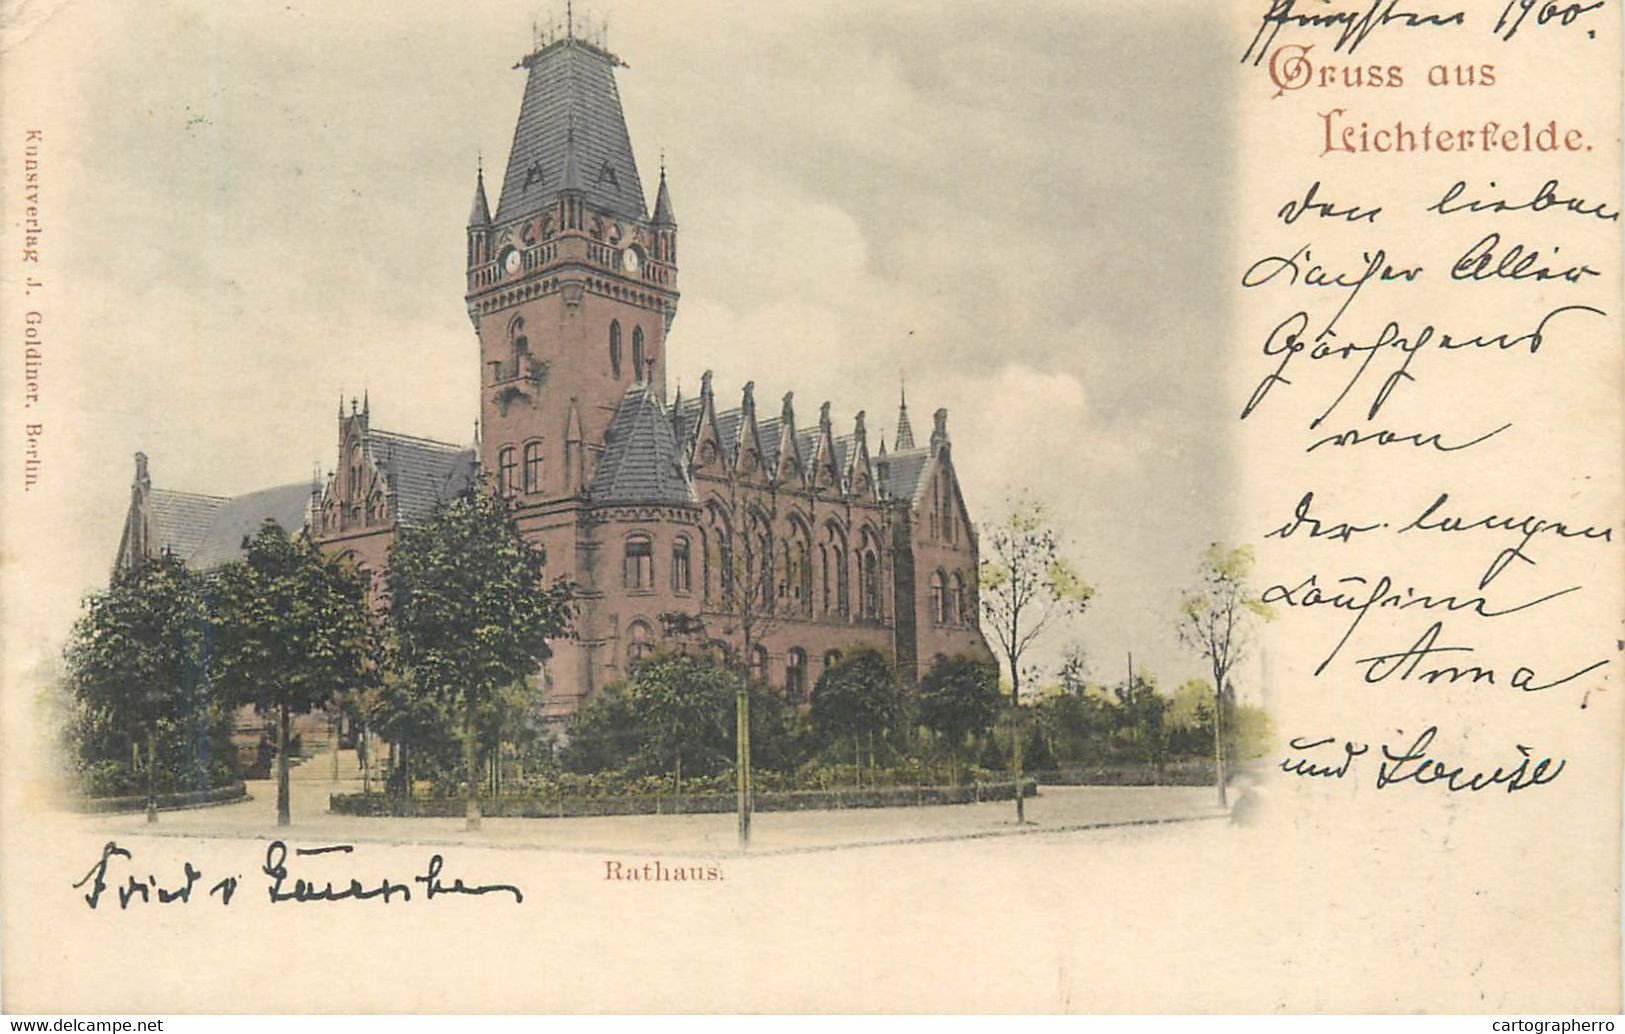 Pfingsten 1900.
Gruss aus
Lichterfelde.
den lieben
Kaiser Aller
von
der langen
Anna
und Louise
Konstverlag J. Goldiner, Berlin.
Rathaus.
Fried v
www.delcampe.net
cartographerro